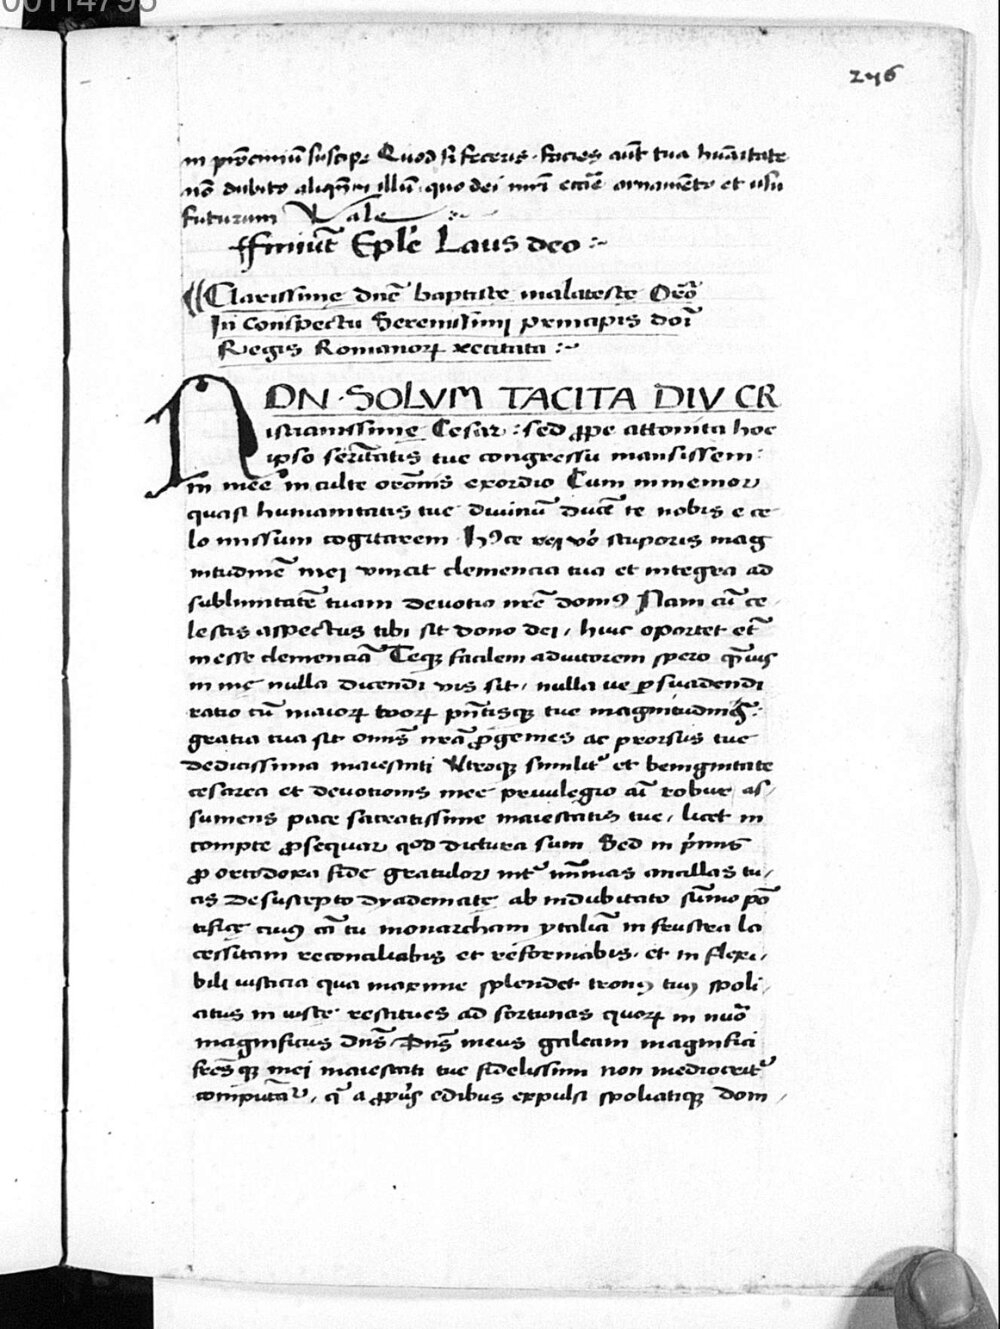 00114795
246
in pͬocinciũ suscipe Quod si feceris. facies aũt tua huãitate
nõ dubito aliqñ illũ. quo dei nr̃i eccĩe ornamẽto et usu
futurum Vale
ffiniũt Epl̃e Laus deo :~
Clarissime dnẽ baptiste malateste Orõ
In Conspectu Serenissimi principis dni
Regis Romanorꝝ recitata :~
NON · SOLVM TACITA DIV CR
istianissime Cesar : sed ꝓpe attonita hoc
ipso serẽitatis tue congressu mansissem :
in mee in culte orõnis exordio Cum in memor
quasi humanitatis tue diuinũ ducẽ te nobis e ce
lo missum cogitarem H9ce rei võ stuporis mag
nitudinẽ mei vincit clemencia tua et integra ad
sublimitatẽ tuam deuotio nr̃e domꝰ Nam cũ ce
lestis aspectus tibi sit dono dei, huic oportet et̃
inesse clemenciã Teqꝫ facilem aduitorem spero q̃uis
in me nulla dicendi vis sit, nulla ue ꝑsuadendi
ratio cũ maiorꝝ tuorꝝ pñtisqꝫ tue magnitudinisqꝫ
gratia tua sit omĩs nrã ꝓgenies ac prorsus tue
dedicissima maiestati Vtroqꝫ similitᷣ et benignitate
cesarea et deuotionis mee priuilegio aĩ robur as,
sumens pace sacratissime maiestatis tue, licet in
compte ꝓsequar qod dictura sum Sed in pͥmis
ꝓ ortodoxa fide gratulor intᷣ minimas ancillas tu,
as de suscepto dyademate ab indubitato sũmo põ
tifice cuiꝰ cã tu monarcham ytaliã in frustra la
cessitam reconciliabis et reformabis. et in flexi,
bili iusticia qua maxime splendet tronꝰ tuꝰ spoli,
atus in iuste restitues ad fortunas quorꝝ in nuõ
magnificus dñs Dñs meus galeam magnifici
frẽsqꝫ mei maiestati tue fidelissimi non mediocritᷣ
computãtᷣ, q̃ a ꝓpͥis edibus expulsi spoliatiqꝫ dom,